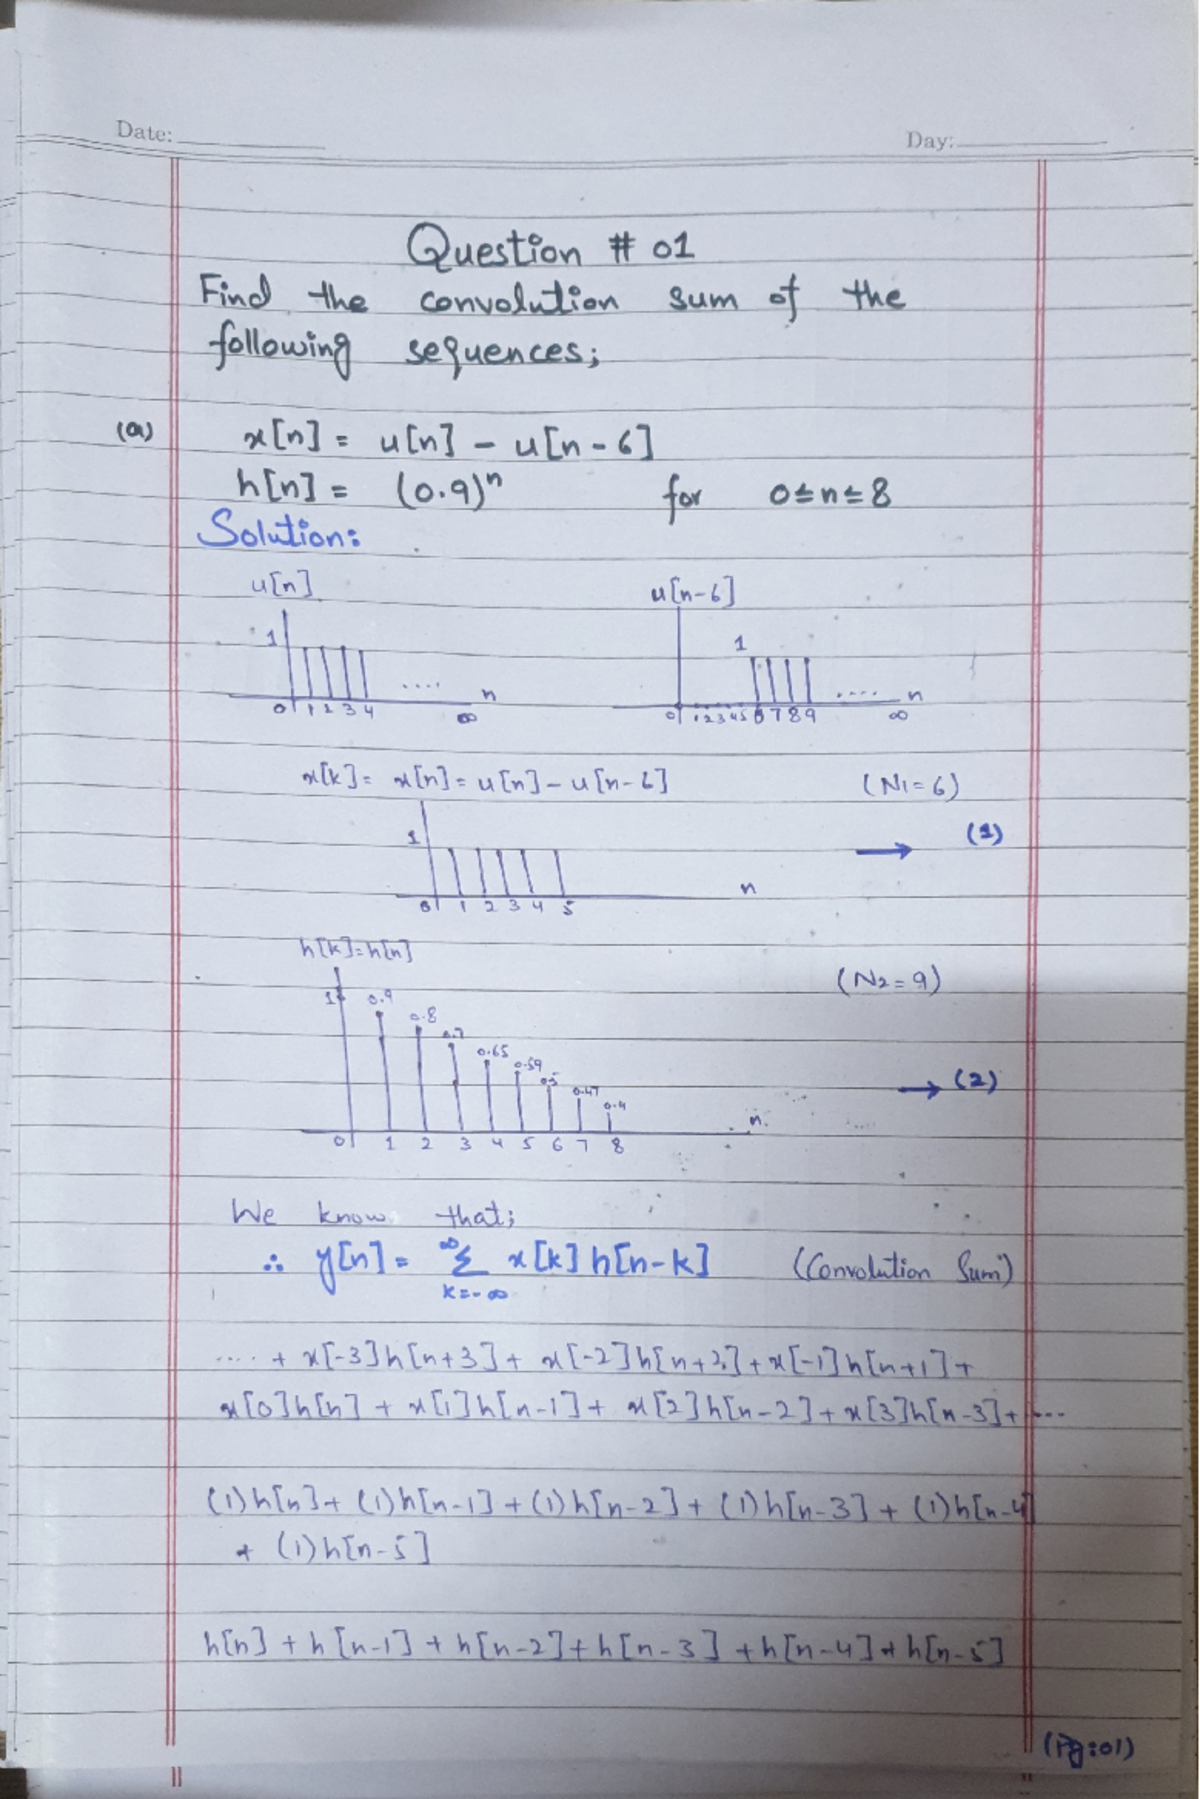 Date: Day:
Question # 01
Find the convolution sum of the
following sequences;
(a) x[n] = u[n] - u[n-6]
h[n] = (0.9)ⁿ for 0≤n≤8
Solution:
u[n] u[n-6]
1 1
.... n .... n
0 1 2 3 4 ∞ 0 1 2 3 4 5 6 7 8 9 ∞
x[k] = x[n] = u[n] - u[n-6] (N1=6)
1 → (1)
n
0 1 2 3 4 5
h[k]=h[n]
(N2=9)
1 0.9 0.8 0.7 0.65 0.59 0.5 0.47 0.4
→ (2)
n
0 1 2 3 4 5 6 7 8
We know that;
∴ y[n] = ∞Σk=-∞ x[k] h[n-k] (Convolution Sum)
.... + x[-3]h[n+3] + x[-2]h[n+2] + x[-1]h[n+1] +
x[0]h[n] + x[1]h[n-1] + x[2]h[n-2] + x[3]h[n-3] + ....
(1)h[n] + (1)h[n-1] + (1)h[n-2] + (1)h[n-3] + (1)h[n-4]
+ (1)h[n-5]
h[n] + h[n-1] + h[n-2] + h[n-3] + h[n-4] + h[n-5]
(Pg:01)